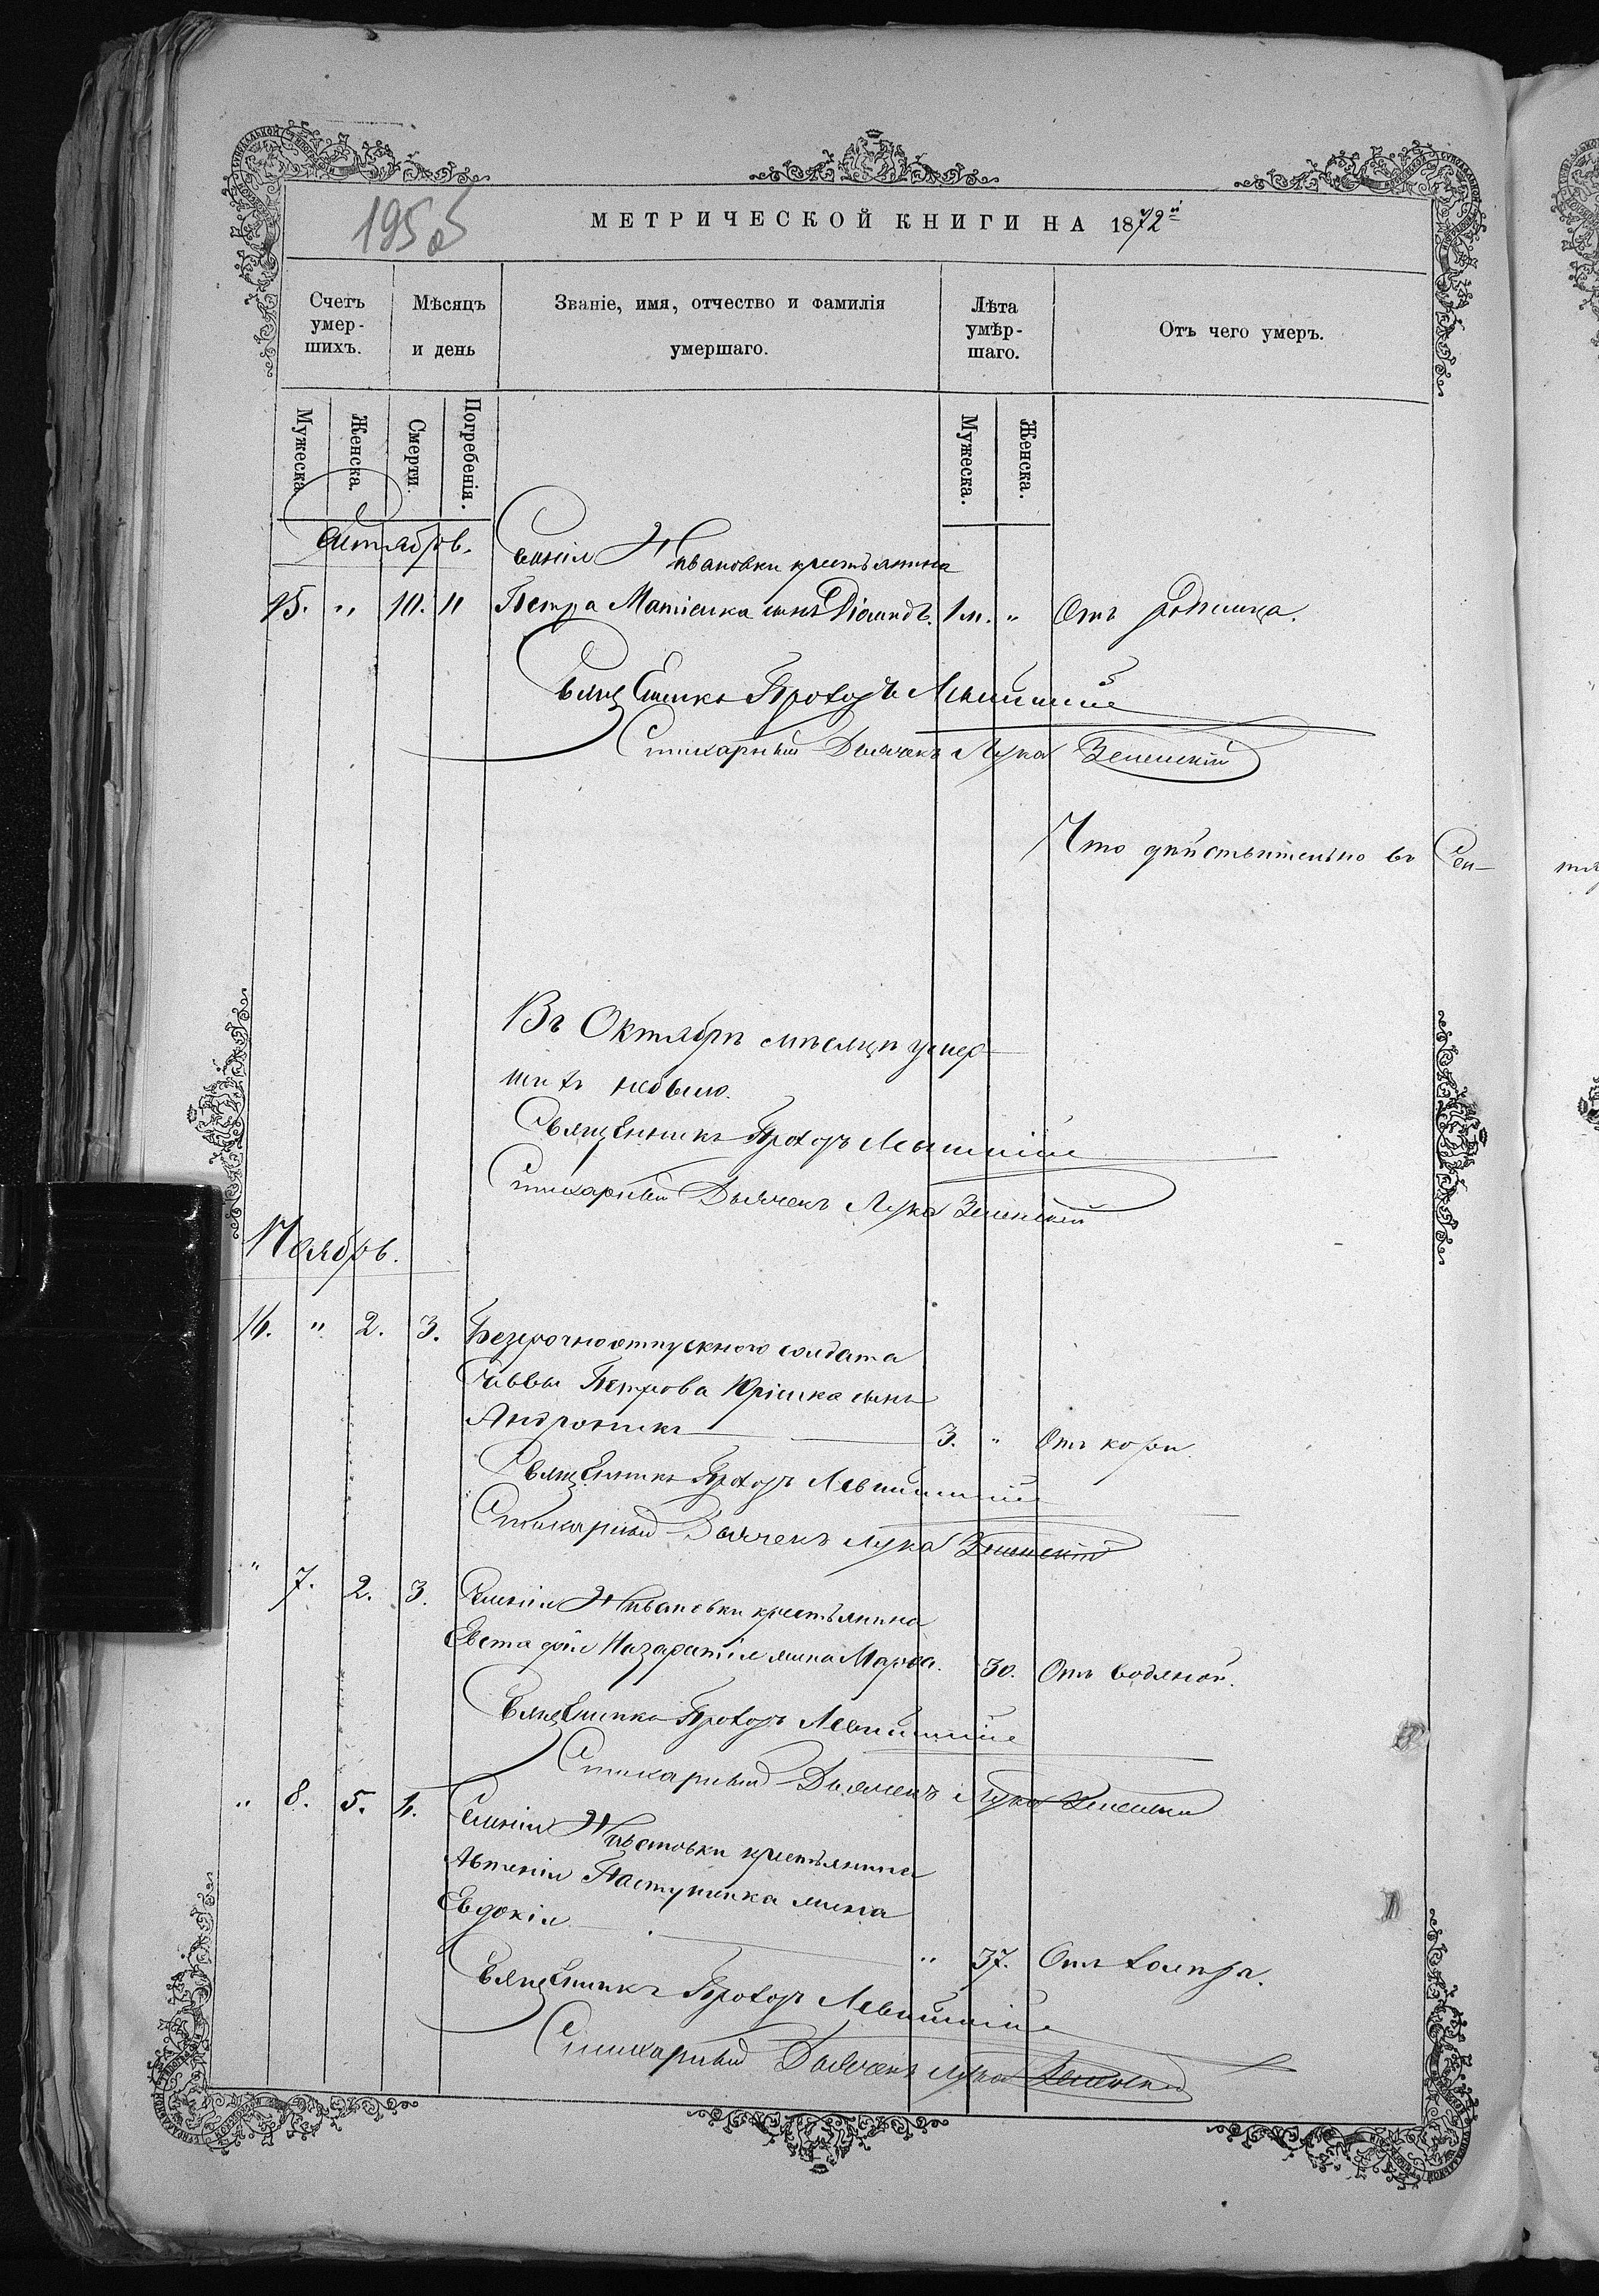 195 об
МЕТРИЧЕСКОЙ КНИГИ НА 1872й
Счетъ умер-шихъ.
Мѣсяцъ и день
Званіе, имя, отчество и фамилія умершаго.
Лѣта умѣр-шаго.
Отъ чего умеръ.
Мужеска.
Женска.
Смерти.
Погребенія.
Мужеска.
Женска.
Селенія Ивановки крестьянина
15. " 10. 11 Петра сынъ 1 м. " Отъ родимца.
Священникъ Прохоръ
Стихарный Дьячекъ Лука Зеленскій
Что дѣйствительно въ Сен-
Въ Октябрѣ мѣсяцѣ умер-
шихъ небыло.
Священникъ Прохоръ
Стихарный Дьячекъ Лука Зеленскій
Ноябрь.
16. " 2. 3. Безсрочноотпускного солдата
Саввы Петрова сынъ
Андроникъ 3. " Отъ кори.
Священникъ Прохоръ
Стихарный Дьячекъ Лука Зеленскій
" 7. 2. 3. Селенія Ивановки крестьянина
жена Марѳа. 30. Отъ водяной.
Священникъ Прохоръ
Стихарный Дьячекъ Лука Зеленскій
" 8. 5. Селенія Ивановки крестьянина
жена
Евдокія " 37. Отъ холеры.
Священникъ Прохоръ
Стихарный Дьячекъ Лука Зеленскій